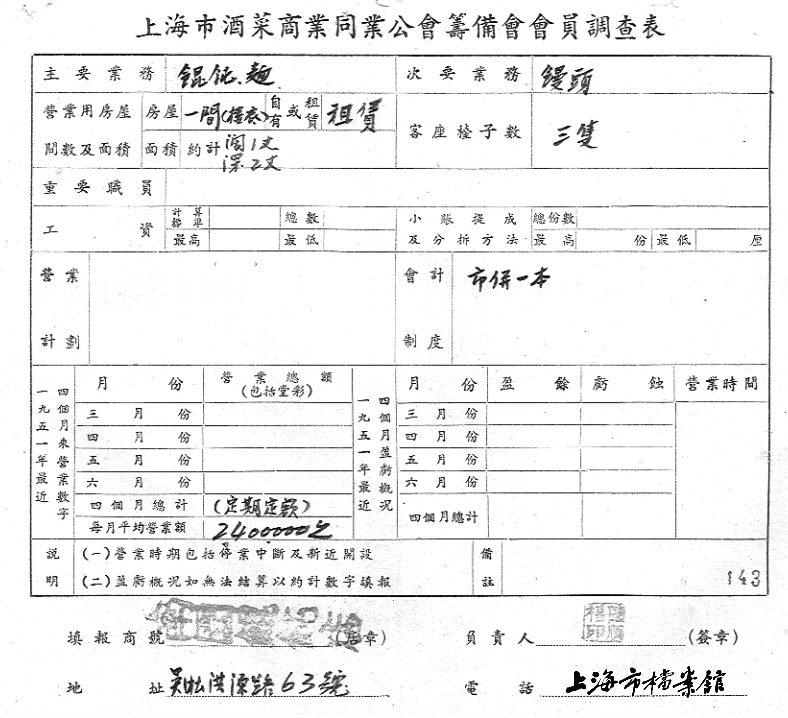 上海市酒菜商業同業公會籌備會會員調查表
主要業務 餛飩.麵 次要業務 饅頭
營業用房屋間數及面積 房屋 一間 自有或租賃 租賃 客座檯子數 三隻
面積 約計 闊1丈
深2丈
重要職員
工資 計算標準 總數 小賬提成及分拆方法 總份數
最高 最低 最高 份 最低 厘
營業計劃 會計制度 市併一本
一九五一年最近四個月來營業數字 月份 營業總額(包括堂彩) 一九五一年最近四個月盈虧概況 月份 盈餘 虧蝕 營業時間
三月份 三月份
四月份 四月份
五月份 五月份
六月份 六月份
四個月總計 (定期定額) 四個月總計
每月平均營業額 2400000元
說明 (一)營業時期包括停業中斷及新近開設 備註
(二)盈虧概況如無法結算以約計數字填報 143
填報商號 (店章) 負責人 (簽章)
地址 吳淞淇源路63號 電話 上海市檔案館